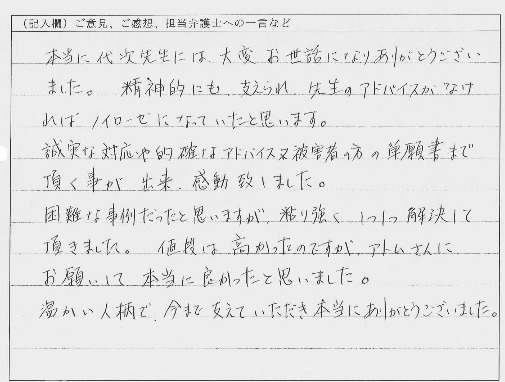 (記入欄) ご意見、ご感想、担当弁護士への一言など
本当に代次先生には、大変お世話になりありがとうござい
ました。 精神的にも支えられ、先生のアドバイスがなけ
ればノイローゼになっていたと思います。
誠実な対応や的確なアドバイス又被害者の方の嘆願書まで
頂く事が出来、感動致しました。
困難な事例だったと思いますが、粘り強く1つ1つ解決して
頂きました。 値段は高かったのですが、アトムさんに
お願いして本当に良かったと思いました。
温かい人柄で、今まで支えていただき本当にありがとうございました。